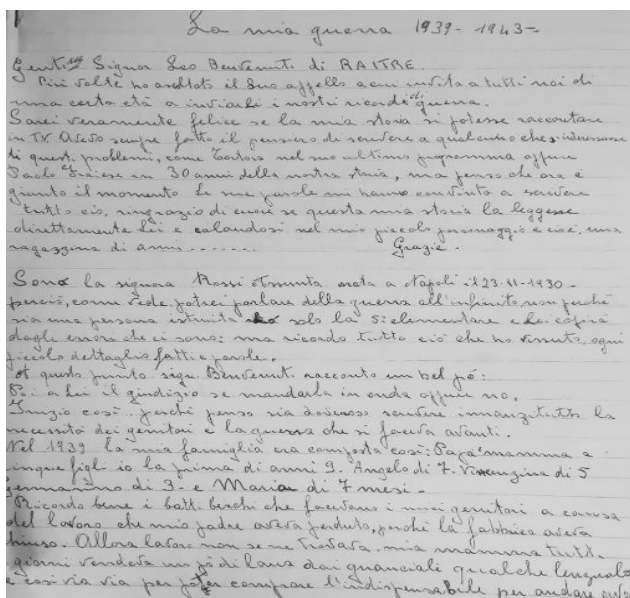 La mia guerra 1939-1943-
Gent.mo Signor Leo Benvenuti di RAITRE.
Più volte ho ascoltato il suo appello a cui invita a tutti noi di
una certa età a inviarli i nostri ricordi di guerra.
Sarei veramente felice se la mia storia si potesse raccontare
in TV. Avevo sempre fatto il pensiero di scrivere a qualcuno che s'interessasse
di questi problemi, come Tortora nel suo ultimo programma oppure
Paolo Fraiese in 30 anni della nostra storia, ma penso che ora è
giunto il momento. Le sue parole mi hanno convinto a scrivere
tutto ciò, ringrazio di cuore se questa mia storia la leggesse
direttamente lei e calandosi nel mio piccolo personaggio e cioè, una
ragazzina di anni.......
Grazie.
Sono la signora Rossi Assunta nata a Napoli il 23-11-1930-
perciò, come vede, potrei parlare della guerra all'infinito, non perché
sia una persona istruita solo la 5: elementare e lei capirà
dagli errori che ci sono: ma ricordo tutto ciò che ho vissuto, ogni
piccolo dettaglio fatti e parole.
A questo punto sign. Benvenuti racconto un bel pó:
Poi a lei il giudizio se mandarla in onda oppure no.
Inizio così perché penso sia doveroso scrivere innanzitutto la
necessità dei genitori e la guerra che si faceva avanti.
Nel 1939 la mia famiglia era composta così: Papà mamma e
cinque figli io la prima di anni 9. Angelo di 7. Vincenzina di 5
Gennarino di 3- e Maria di 7 mesi-
Ricordo bene i battibecchi che facevano i miei genitori a causa
del lavoro che mio padre aveva perduto, perché la fabbrica aveva
chiuso. Allora lavoro non se ne trovava, mia mamma tutti
i giorni vendeva un pò di lana dai guanciali qualche lenzuolo
e così via via per poter comprare l'indispensabile per andare